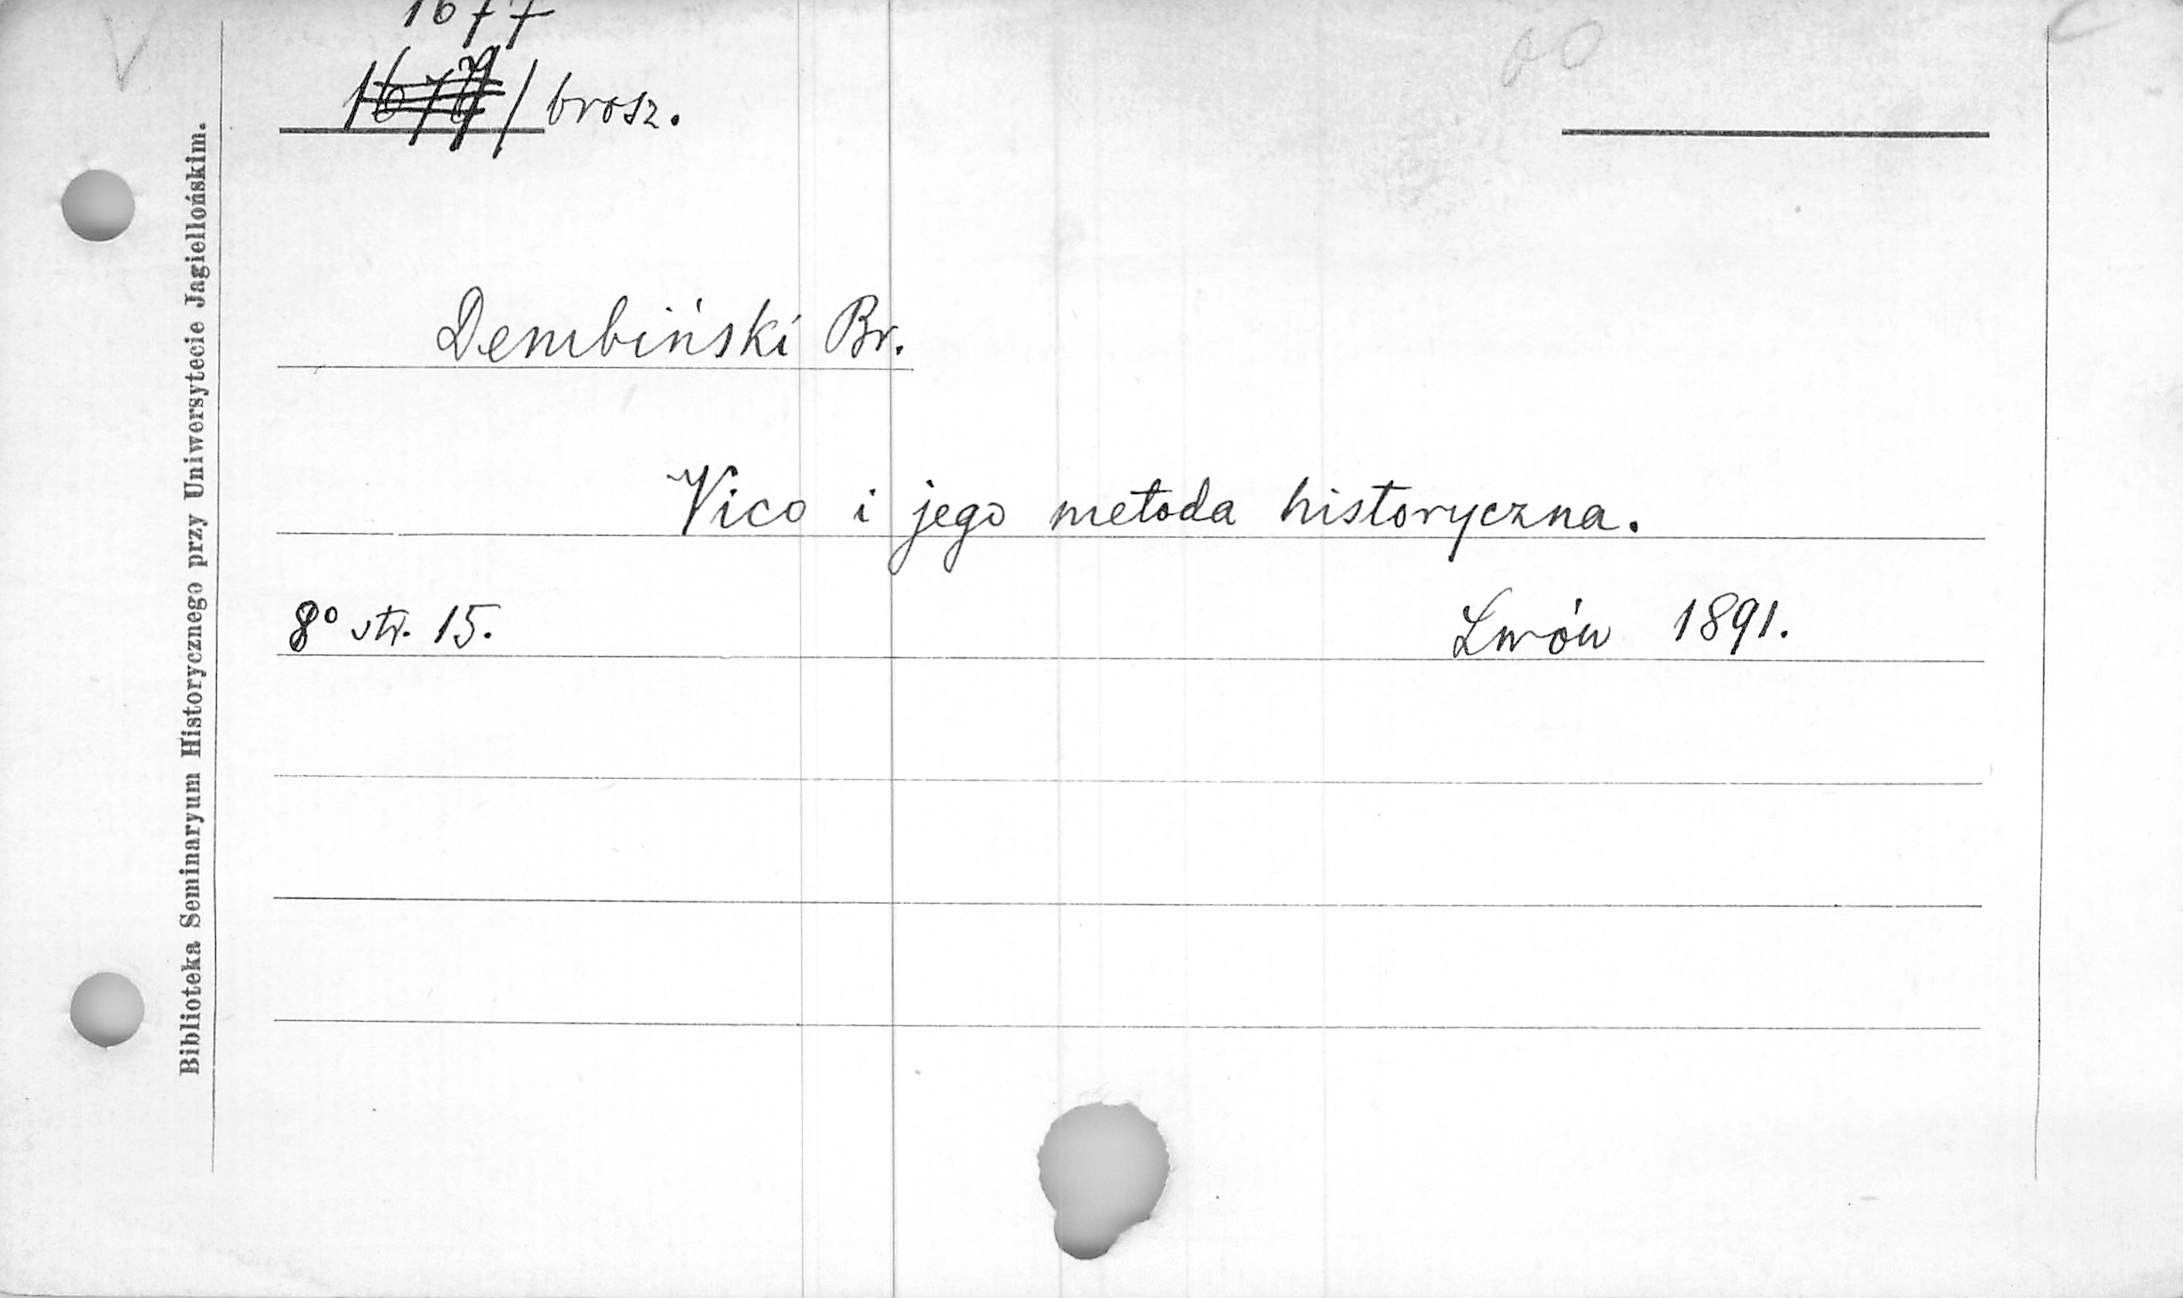 1677
/ brosz.
Dembiński Br.
Vico i jego metoda historyczna.
8° str. 15. Lwów 1891.
Biblioteka Seminaryum Historycznego przy Uniwersytecie Jagiellońskim.